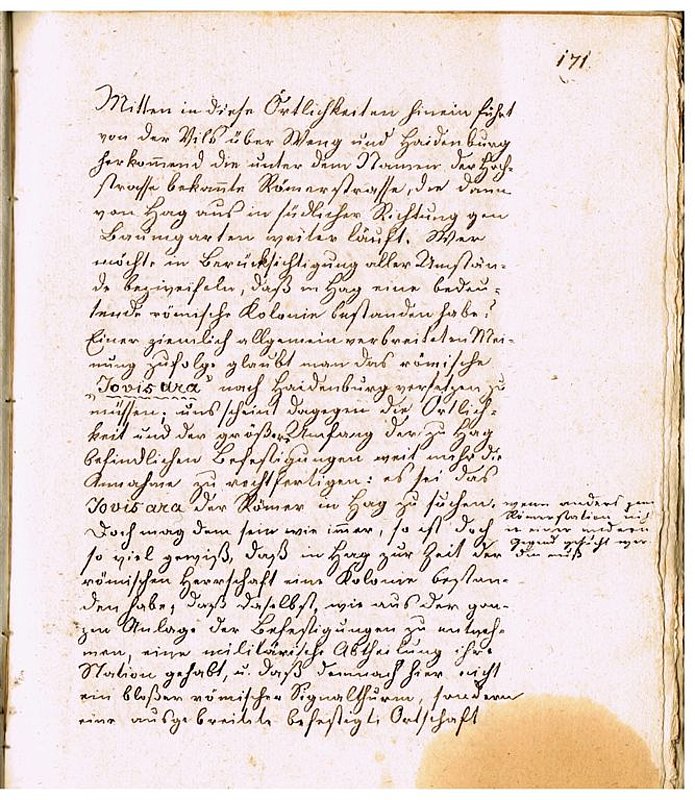 171
Mitten in diese Örtlichkeiten hinein führt
von der Vils über Weng und Haidenburg
herkom̄end die unter dem Namen der Hoch-
strasse bekan̄te Römerstrasse, die dann
von Hag aus in südlicher Richtung gen
Baumgarten weiter läuft. Wer
möchte in Berücksichtigung aller Umstän-
de bezweifeln, daß in Hag eine bedeu-
tende römische Kolonie bestanden habe?
Einer ziemlich allgemein verbreiteten Mei-
nung zufolge glaubt man das römische
„Jovisara" nach Haidenburg versetzen zu
müssen; uns scheint dagegen die Örtlich-
keit und der größere Umfang der zu Hag
befindlichen Befestigungen weit mehr die
Annahme zu rechtfertigen: es sei das
Jovisara der Römer in Hag zu suchen,
wenn anders
Römerstation
in einer andern
Gegend gesucht wer-
den muß
Doch mag dem sein wie immer, so ist doch
so viel gewiß, daß in Hag zur Zeit der
römischen Herrschaft eine Kolonie bestan-
den habe, daß daselbst, wie aus der gan-
zen Anlage der Befestigungen zu entneh-
men, eine militärische Abtheilung ihre
Station gehabt, u. daß demnach hier nicht
ein bloßer römischer Signalthurm, sondern
eine ausgebreitete befestigte Ortschaft